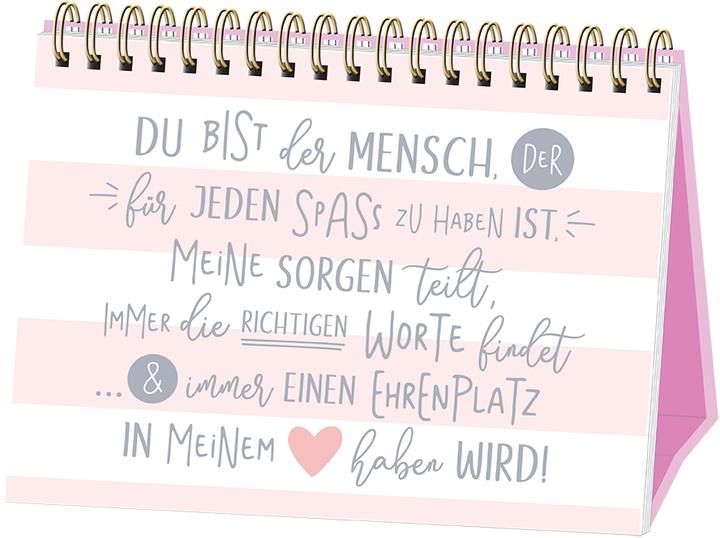 DU BIST der MENSCH, DER
für JEDEN SPASS ZU HABEN IST,
MEINE SORGEN teilt,
IMMER die RICHTIGEN WORTE findet
... & immer EINEN EHRENPLATZ
IN MEINEM ♥ haben WIRD!